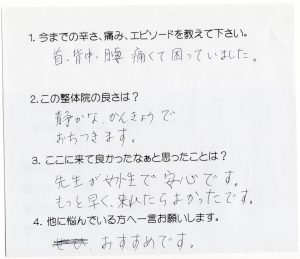 1. 今までの辛さ、痛み、エピソードを教えて下さい。
首、背中、腰 痛くて困っていました。
2.この整体院の良さは?
静かな、かんきょうで
おちつきます。
3. ここに来て良かったなぁと思ったことは?
先生が女性で安心です。
もっと早く、来れたらよかったです。
4. 他に悩んでいる方へ一言お願いします。
おすすめです。